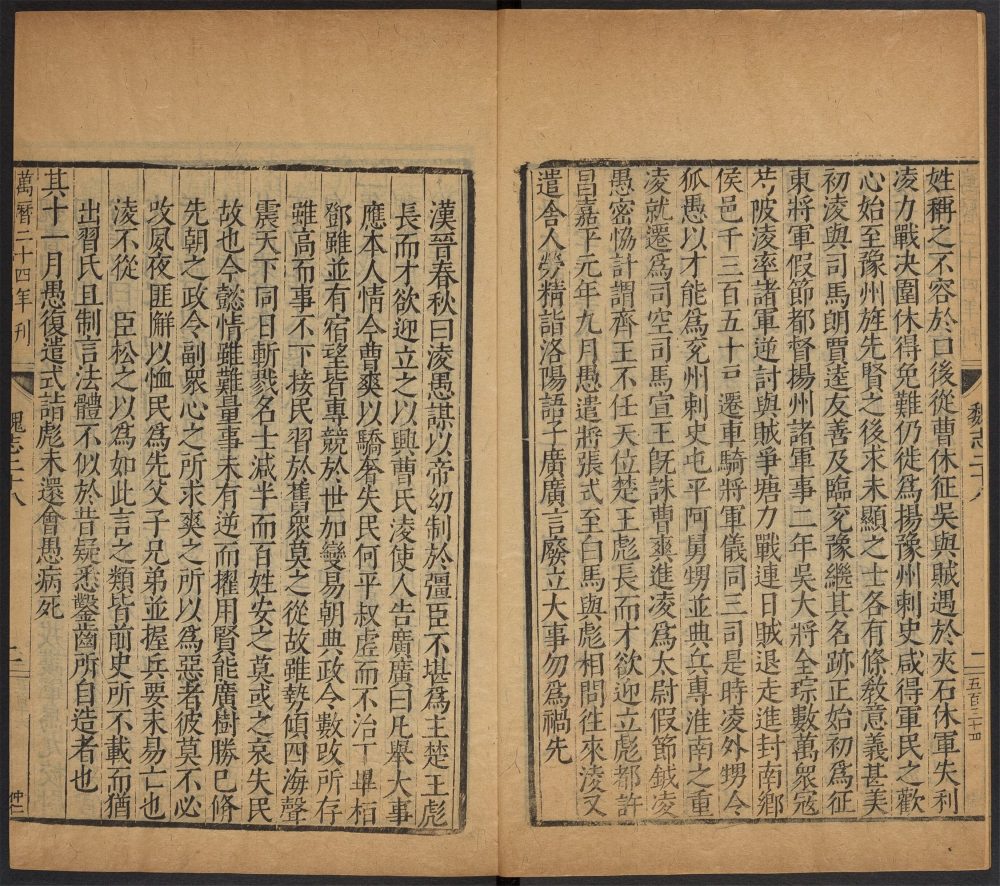 姓稱之不容於口後從曹休征吳與賊遇於夾石休軍失利
凌力戰决圍休得免難仍徙爲揚豫州刺史咸得軍民之歡
心始至豫州旌先賢之後求未顯之士各有條教意義甚美
初淩與司馬朗賈逵友善及臨兖豫繼其名跡正始初爲征
東將軍假節都督揚州諸軍事二年吳大將全琮數萬衆寇
芍陂淩率諸軍逆討與賊爭塘力戰連日賊退走進封南鄉
侯邑千三百五十戸遷車騎將軍儀同三司是時凌外甥令
狐愚以才能爲兖州刺史屯平阿舅甥並典兵專淮南之重
凌就遷爲司空司馬宣王旣誅曹爽進凌爲太尉假節鉞凌
愚密恊計謂齊王不任天位楚王彪長而才欲迎立彪都許
昌嘉平元年九月愚遣將張式至白馬與彪相問往來淩又
遣舍人勞精詣洛陽語子廣廣言廢立大事勿爲禍先
魏志二十八
二
五百三十四
漢晉春秋曰淩愚謀以帝幼制於彊臣不堪爲主楚王彪
長而才欲迎立之以興曹氏淩使人告廣廣曰凡舉大事
應本人情今曹爽以驕奢失民何平叔虛而不治丁畢桓
鄧雖並有宿望皆專競於世加變易朝典政令數改所存
雖高而事不下接民習於舊衆莫之從故雖勢傾四海聲
震天下同日斬戮名士減半而百姓安之莫或之哀失民
故也今懿情雖難量事未有逆而擢用賢能廣樹勝已脩
先朝之政令副衆心之所求爽之所以爲惡者彼莫不必
攺夙夜匪觧以恤民爲先父子兄弟並握兵要未易亡也
淩不從
臣松之以爲如此言之類皆前史所不載而猶
出習氏且制言法體不似於昔疑悉鑿齒所自造者也
其十一月愚復遣式詣彪未還會愚病死
萬曆二十四年刋
魏志二十八
二
仲